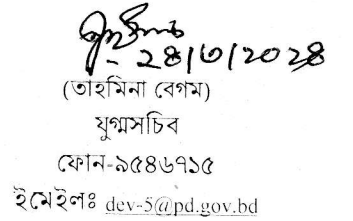 ২৪/৩/২০২৪
(তাহমিনা বেগম)
যুগ্মসচিব
ফোন-৯৫৪৬৭১৫
ইমেইলঃ dev-5@pd.gov.bd